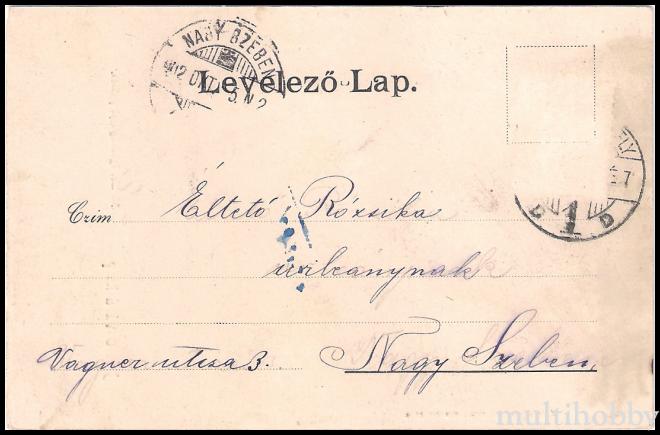 NAGY-SZEBEN
902 OKT.
Levelező-Lap.
Czim
Éltető Rózsika
urleánynak
Vagner utcsa 3.
Nagy Szeben,
1
D
multihobby